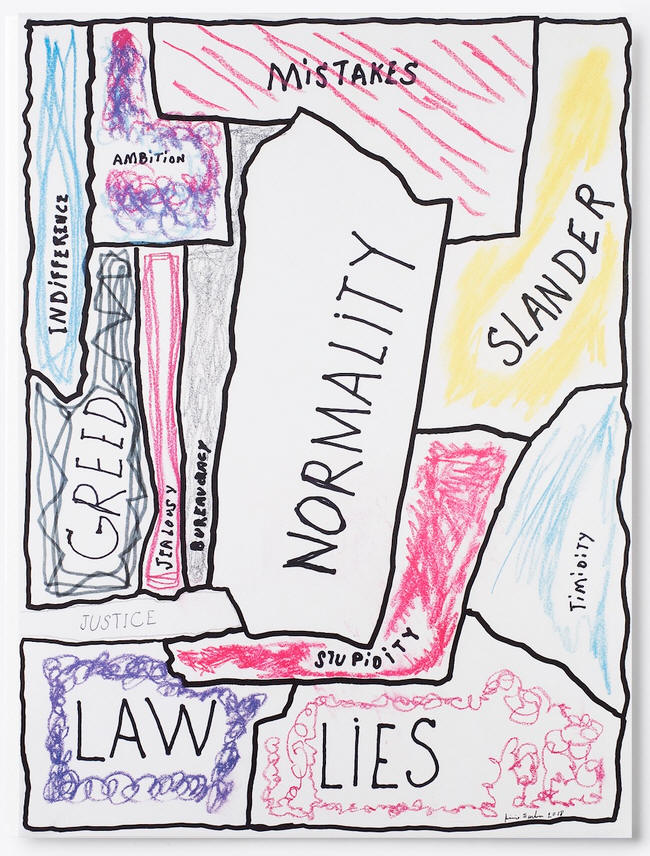 MiSTAKES
AMBiTiON
INDiFFERENCE
SLANDER
NORMALiTY
GREED
JEALOUSY
BUREAUCRACY
TiMiDiTY
JUSTICE
STUPiDiTY
LAW
LiES
2018